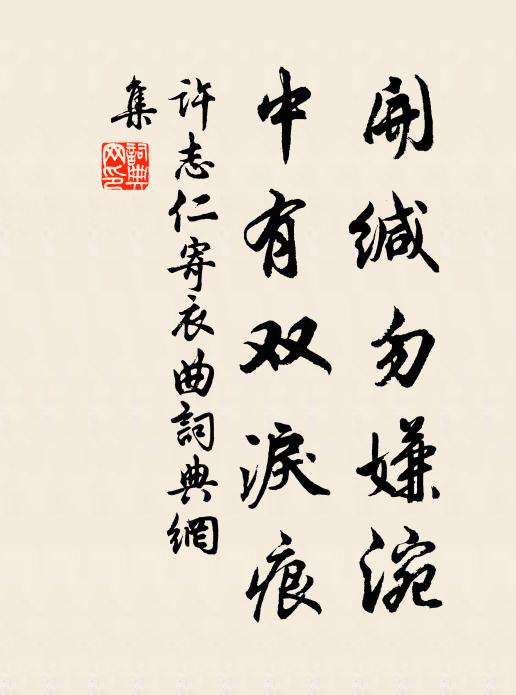 開缄勿嫌涴
中有双淚痕
许志仁寄衣曲詞典網
集
詞典
网印